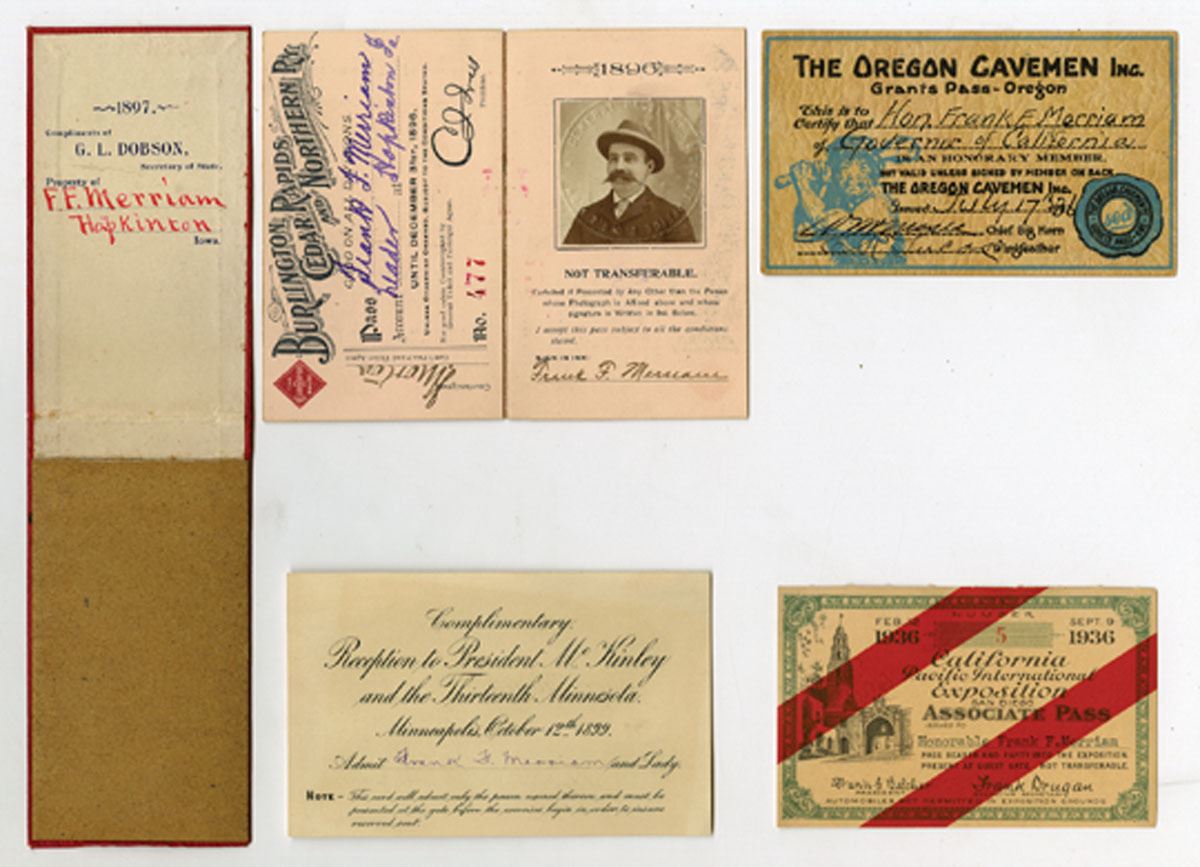 1897.
Compliments of
G. L. DOBSON,
Secretary of State.
Property of
F. F. Merriam
Hopkinton
Iowa.
BURLINGTON, CEDAR RAPIDS AND NORTHERN RY.
GOOD ON ALL DIVISIONS.
Pass Frank F. Merriam
Account Leader at Hopkinton Ia
UNTIL DECEMBER 31ST, 1896.
UNLESS OTHERWISE ORDERED, SUBJECT TO THE CONDITIONS
No. 477
President.
1896
NOT TRANSFERABLE.
Forfeited if Presented by Any Other than the Person
whose Photograph is Affixed above and whose
signature is Written in Ink Below.
I accept this pass subject to all the conditions
SIGN IN INK:
Frank F. Merriam
THE OREGON CAVEMEN INC.
Grants Pass - Oregon
This is to
Certify that Hon. Frank F. Merriam
of Governor of California
IS AN HONORARY MEMBER.
NOT VALID UNLESS SIGNED BY MEMBER ON BACK
THE OREGON CAVEMEN INC.
July 17
Chief Big Horn
Wingfeather
Complimentary.
Reception to President McKinley
and the Thirteenth Minnesota.
Minneapolis, October 12th 1899.
Admit Frank F. Merriam and Lady.
NOTE - This card will admit only the person named thereon and must be
presented at the gate before the exercises begin in order to insure
reserved seat.
NUMBER
FEB. 12 5 SEPT. 9
1936 1936
California
Pacific International
Exposition
SAN DIEGO
ASSOCIATE PASS
ISSUED TO
Honorable Frank F. Merriam
PASS BEARER AND PARTY INTO THE EXPOSITION.
PRESENT AT GUEST GATE. NOT TRANSFERABLE.
Frank Drugan
AUTOMOBILES NOT PERMITTED IN EXPOSITION GROUNDS